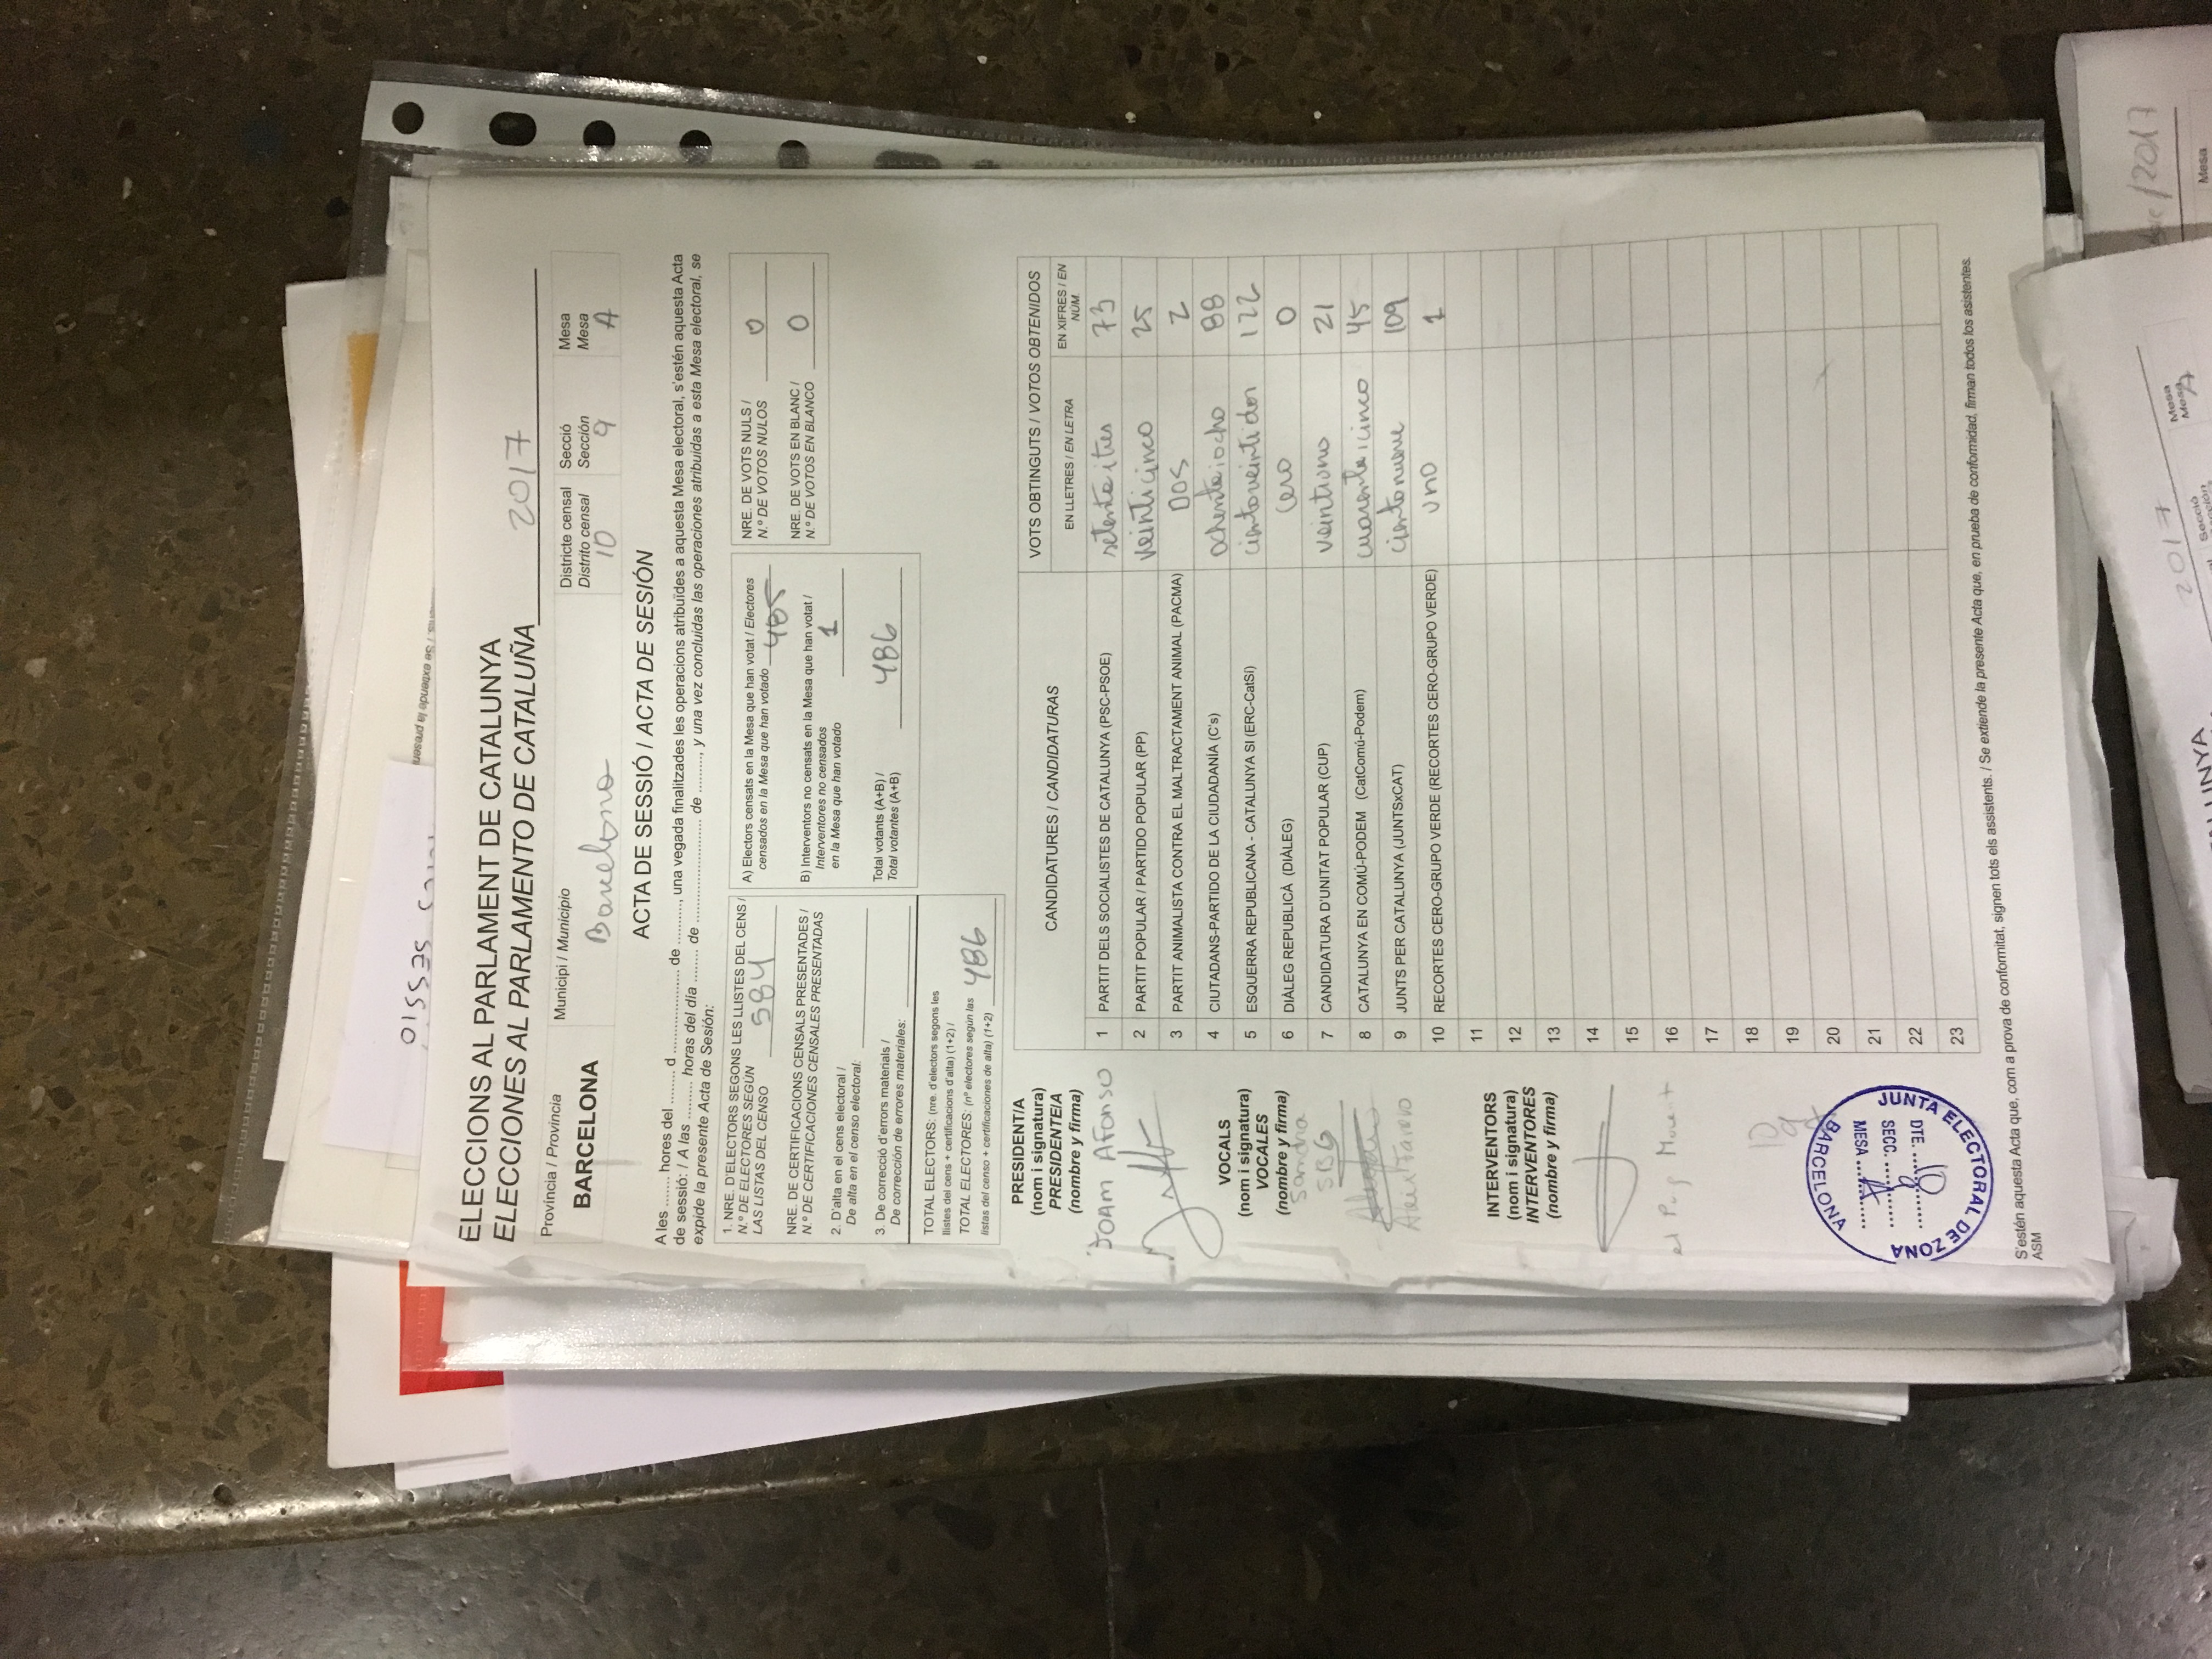 ELECCIONS AL PARLAMENT DE CATALUNYA
ELECCIONES AL PARLAMENTO DE CATALUÑA 2017
Província / Provincia
BARCELONA
Municipi / Municipio
Barcelona
Districte censal
Distrito censal
10
Secció
Sección
9
Mesa
Mesa
A
ACTA DE SESSIÓ / ACTA DE SESIÓN
A les ....... hores del ........ d .................... de .........., una vegada finalitzades les operacions atribuïdes a aquesta Mesa electoral, s'estén aquesta Acta
de sessió: / A las ......... horas del día ........ de ......................... de ........., y una vez concluidas las operaciones atribuidas a esta Mesa electoral, se
expide la presente Acta de Sesión:
1. NRE. D'ELECTORS SEGONS LES LLISTES DEL CENS /
N.º DE ELECTORES SEGÚN
LAS LISTAS DEL CENSO 584
NRE. DE CERTIFICACIONS CENSALS PRESENTADES /
N.º DE CERTIFICACIONES CENSALES PRESENTADAS
2. D'alta en el cens electoral /
De alta en el censo electoral:
3. De correcció d'errors materials /
De corrección de errores materiales:
TOTAL ELECTORS: (nre. d'electors segons les
llistes del cens + certificacions d'alta) (1+2) /
TOTAL ELECTORES: (nº electores según las
listas del censo + certificaciones de alta) (1+2) 486
A) Electors censats en la Mesa que han votat / Electores
censados en la Mesa que han votado 485
B) Interventors no censats en la Mesa que han votat /
Interventores no censados
en la Mesa que han votado 1
Total votants (A+B) /
Total votantes (A+B) 486
NRE. DE VOTS NULS /
N.º DE VOTOS NULOS 0
NRE. DE VOTS EN BLANC /
N.º DE VOTOS EN BLANCO 0
PRESIDENT/A
(nom i signatura)
PRESIDENTE/A
(nombre y firma)
JOAM AFONSO
VOCALS
(nom i signatura)
VOCALES
(nombre y firma)
Sandra
SBG
INTERVENTORS
(nom i signatura)
INTERVENTORES
(nombre y firma)
el Puig
10
9
A
CANDIDATURES / CANDIDATURAS
VOTS OBTINGUTS / VOTOS OBTENIDOS
EN LLETRES / EN LETRA
EN XIFRES / EN
NÚM.
1 PARTIT DELS SOCIALISTES DE CATALUNYA (PSC-PSOE) setenta i tres 73
2 PARTIT POPULAR / PARTIDO POPULAR (PP) veinticinco 25
3 PARTIT ANIMALISTA CONTRA EL MALTRACTAMENT ANIMAL (PACMA) DOS 2
4 CIUTADANS-PARTIDO DE LA CIUDADANÍA (C's) ochenta i ocho 88
5 ESQUERRA REPUBLICANA - CATALUNYA SI (ERC-CatSí) ciento veintidos 122
6 DIÀLEG REPUBLICÀ (DIÀLEG) cero 0
7 CANDIDATURA D'UNITAT POPULAR (CUP) veintiuno 21
8 CATALUNYA EN COMÚ-PODEM (CatComú-Podem) cuarenta i cinco 45
9 JUNTS PER CATALUNYA (JUNTSxCAT) ciento nueve 109
10 RECORTES CERO-GRUPO VERDE (RECORTES CERO-GRUPO VERDE) uno 1
11
12
13
14
15
16
17
18
19
20
21
22
23
JUNTA ELECTORAL DE ZONA
BARCELONA
DTE. 10
SECC. 9
MESA A
S'estén aquesta Acta que, com a prova de conformitat, signen tots els assistents. / Se extiende la presente Acta que, en prueba de conformidad, firman todos los asistentes.
ASM
SESSIO
Se extiende la presen
2017
Mesa
Mesa
A
Secció
/2017
Mesa